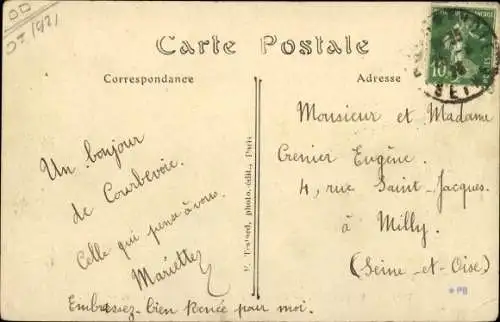 OT 1921
Carte Postale
Correspondance
Adresse
10
SEINE
Un bonjour
de Courbevoie.
Celle qui pense à vous
Mariette
Embrassez-bien Renée pour moi.
photo.-édit., Paris
Monsieur et Madame
Crenier Eugène.
4, rue Saint-Jacques.
à Milly.
(Seine-et-Oise)
PB